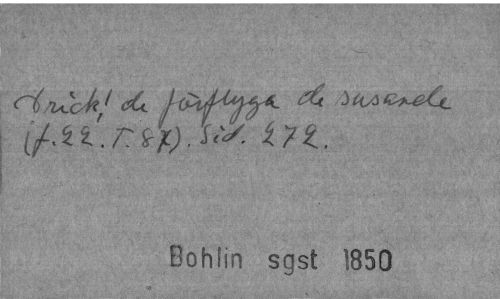 Drick! de förflyga de susande
(f. 22. T. 87). Sid. 272.
Bohlin sgst 1850